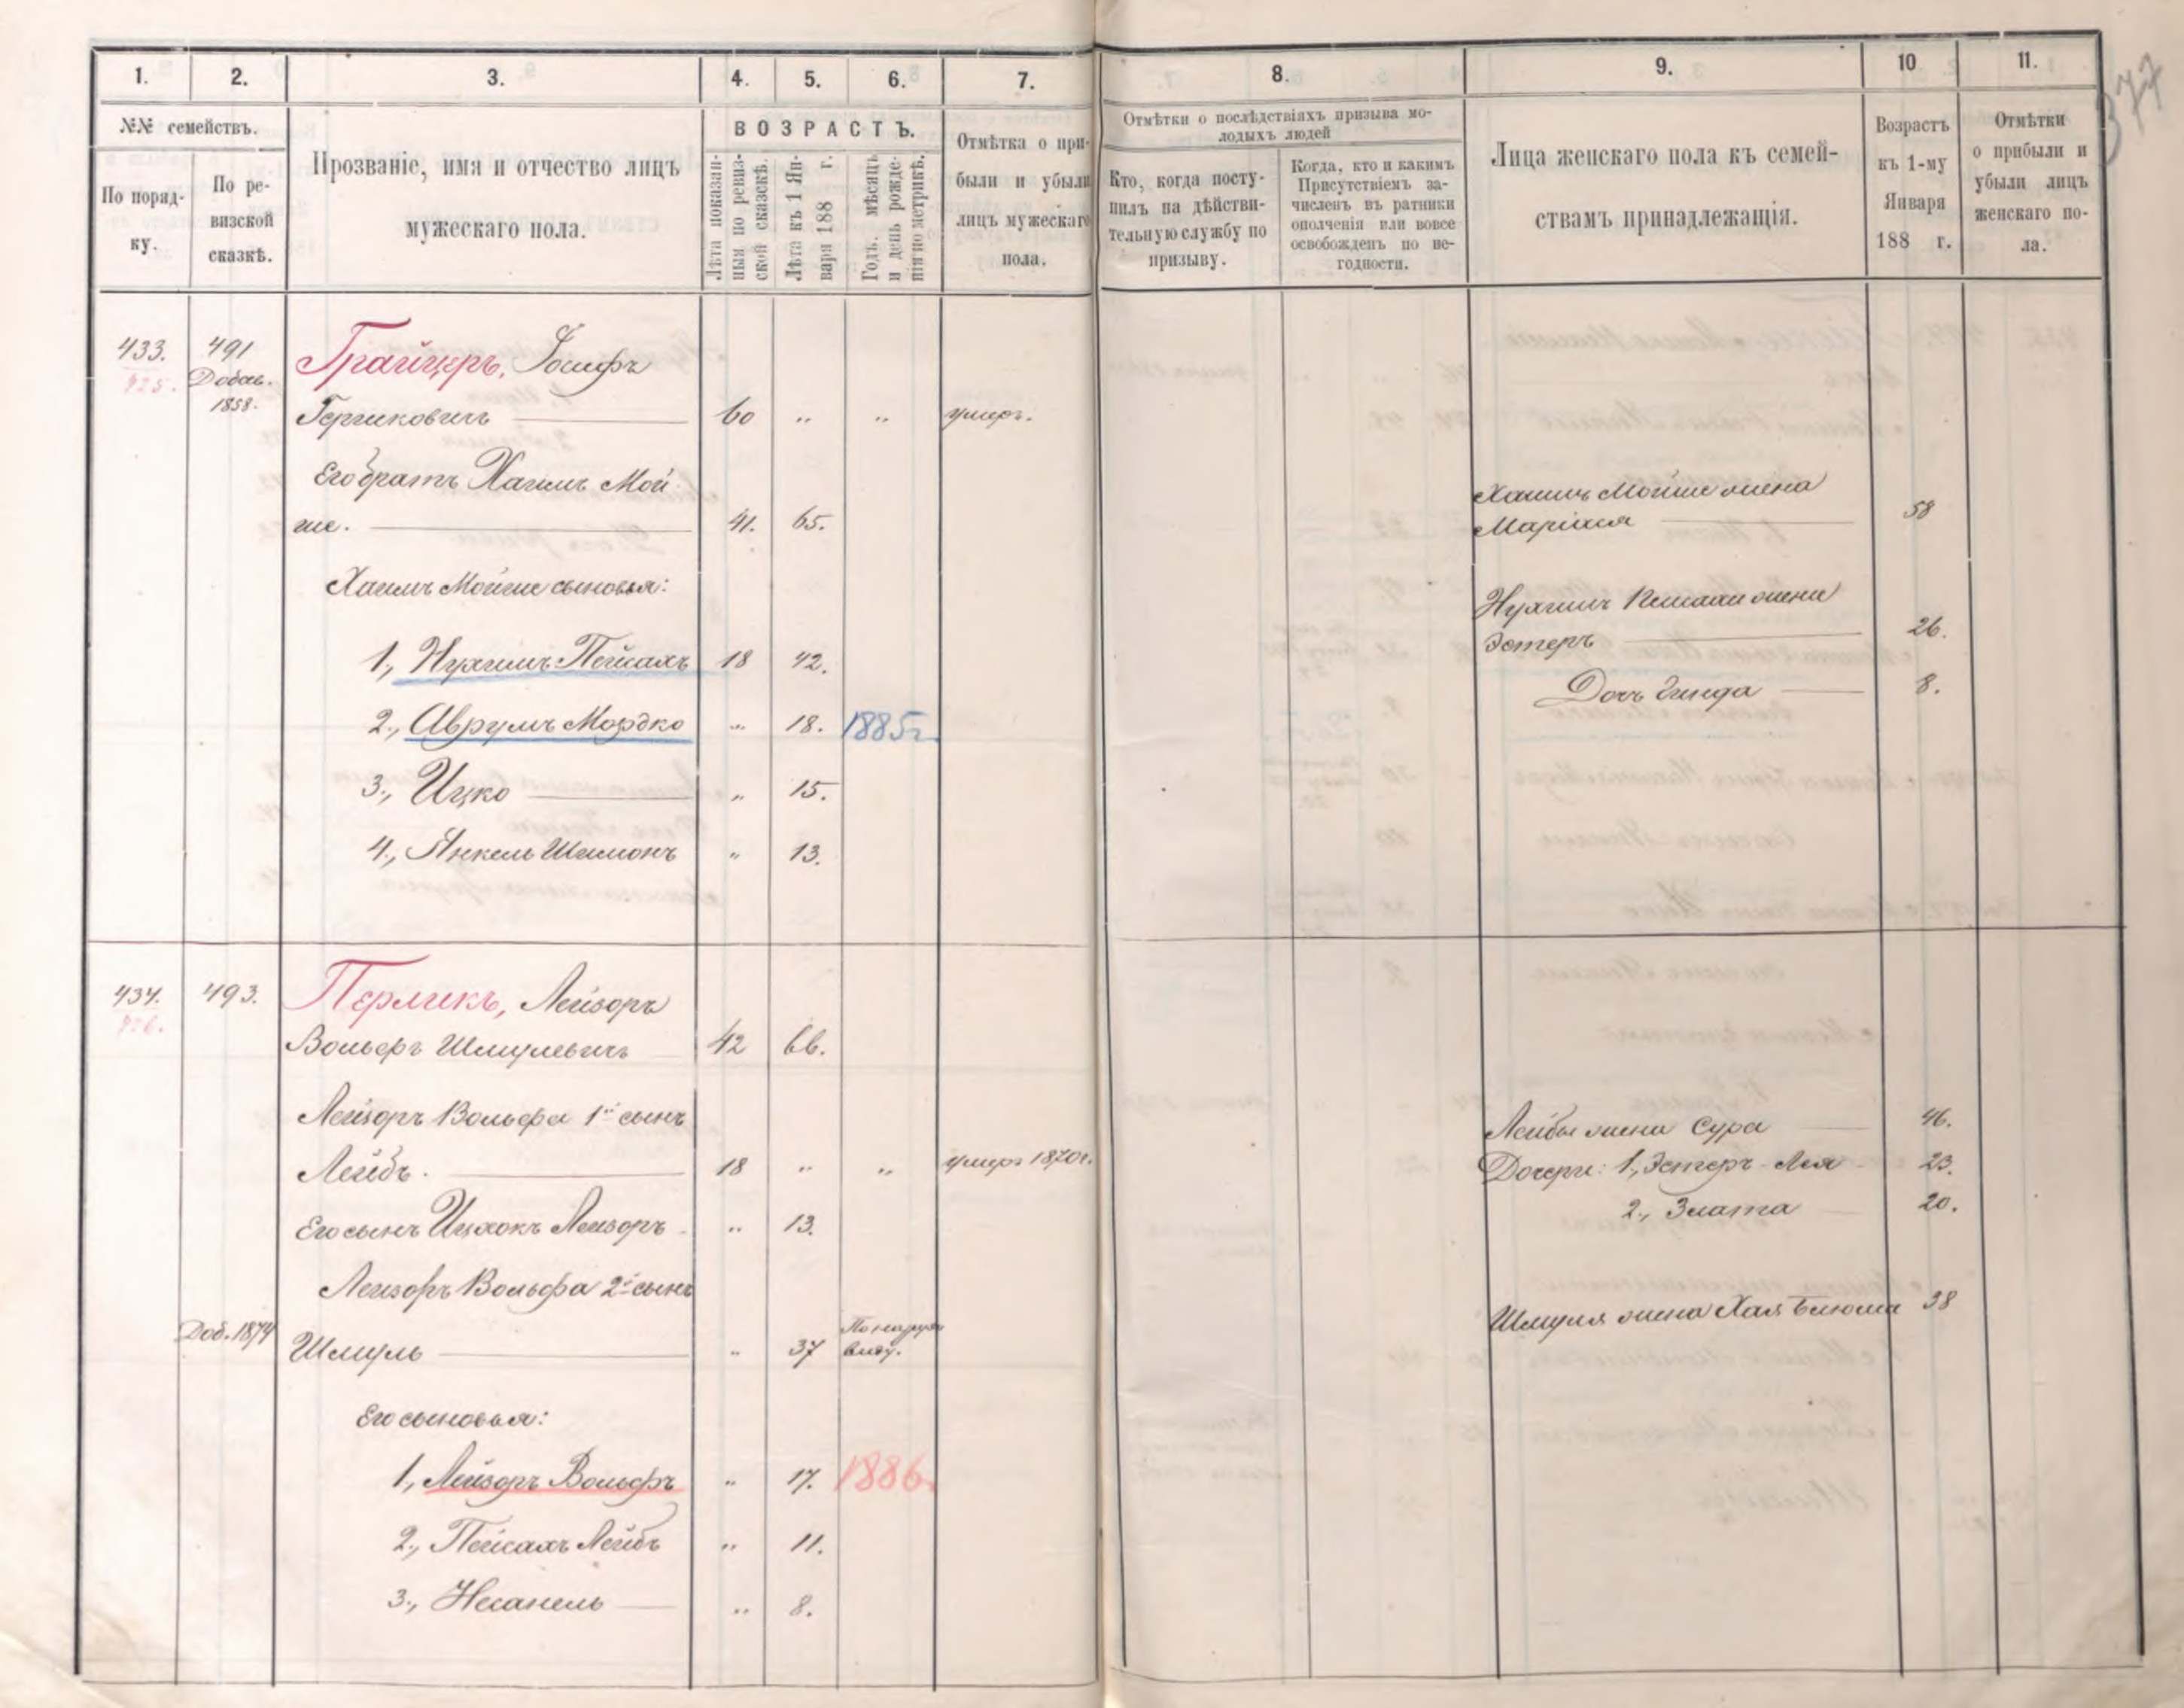 377
1. 2. 3. 4. 5. 6. 7. 8. 9. 10 11.
№№ семействъ.
По поряд-
ку.
По ре-
визской
сказкѣ.
Прозваніе, имя и отчество лицъ
мужескаго пола.
ВОЗРАСТЪ.
Лѣта показан-
ныя по ревиз-
ской сказкѣ.
Лѣта къ 1 Ян-
варя 188 г.
Годъ, мѣсяцъ
и день рожде-
нія по метрикѣ.
Отмѣтка о при-
были и убыли
лицъ мужескаго
пола.
Отмѣтки о послѣдствіяхъ призыва мо-
лодыхъ людей
Кто, когда посту-
пилъ на дѣйстви-
тельную службу по
призыву.
Когда, кто и какимъ
Присутствіемъ за-
численъ въ ратники
ополченія или вовсе
освобожденъ по не-
годности.
Лица женскаго пола къ семей-
ствамъ принадлежащія.
Возрастъ
къ 1-му
Января
188 г.
Отмѣтки
о прибыли и
убыли лицъ
женскаго по-
ла.
433. 491 Грайцеръ, Іосифъ
425. Добав.
1858.
Гершковичъ 60 " " умеръ.
Его братъ Хаимъ Мой-
ше. 41. 65.
Хаимъ Мойше жена
Маріася 58
Хаимъ Мойше сыновья:
Нухимъ Пейсаха жена
Эстеръ 26.
1., Нухимъ Пейсахъ 18 42.
Дочь Гинда 8.
2., Аврумъ Мордко " 18. 1885г.
3., Ицко " 15.
4., Янкель Шимонъ " 13.
434. 493. Перликъ, Лейзоръ
426.
Вольфъ Шмулевичъ 42 66.
Лейзоръ Вольфа 1й сынъ
Лейбъ. 18 " " умеръ 1870г.
Лейбы жена Сура 46.
Дочери: 1., Эстеръ-Лея 23.
2., Злата 20.
Его сынъ Ицхокъ Лейзоръ " 13.
Лейзоръ Вольфа 2й сынъ
Доб. 1874 Шмуль " 37 По наруж.
виду.
Шмуля жена Хая Блюма 38
Его сыновья:
1., Лейзоръ Вольфъ " 17. 1886.
2., Пейсахъ Лейбъ " 11.
3., Несанель " 8.